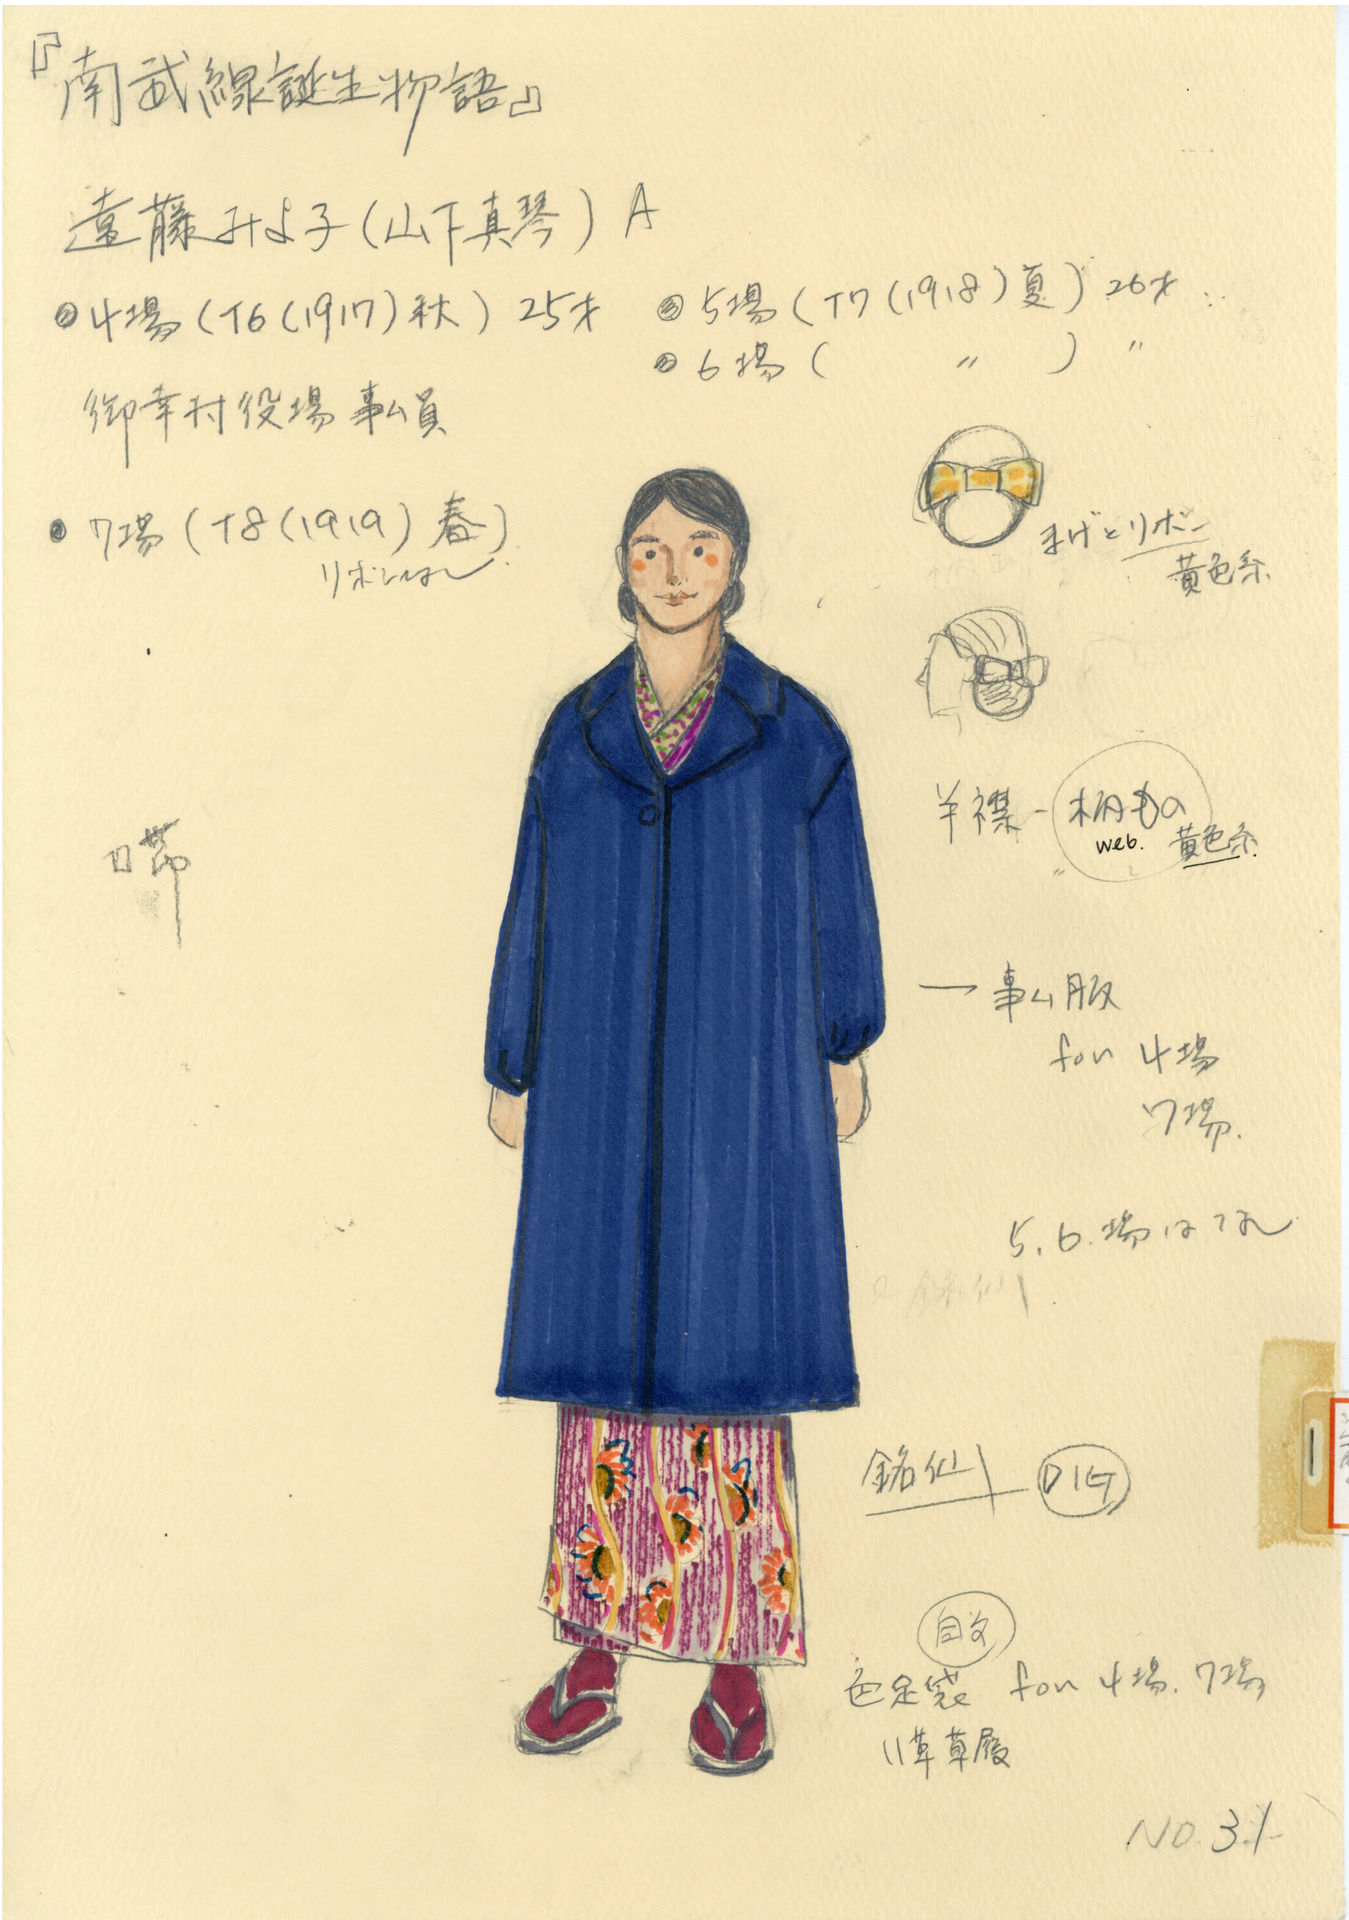 『南武線誕生物語』
遠藤みよ子(山下真琴) A
4場(T6(1917)秋) 25才
5場(T7(1918)夏) 26才
6場( 〃 ) 〃
御幸村役場事ム員
7場(T8(1919)春)
リボンなし
まげとリボン
黄色系
半襟-柄もの
web. 黄色系
事ム服
for 4場
7場.
5.6.場はなし
銘仙
銘仙 DIG
自父
色足袋 for 4場.7場
草草履
NO.31